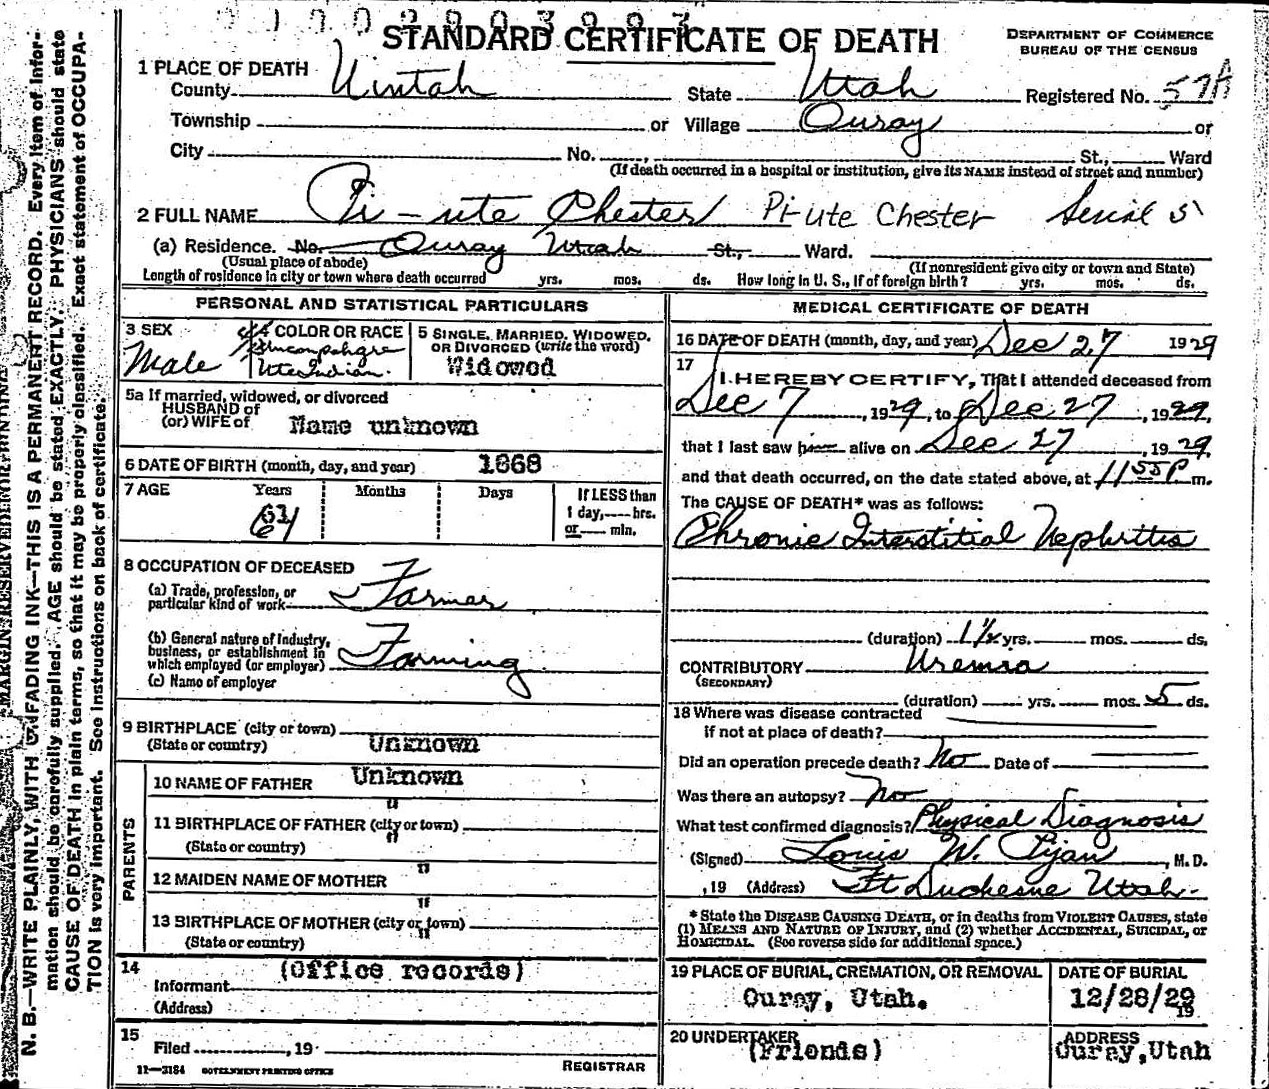 STANDARD CERTIFICATE OF DEATH
DEPARTMENT OF COMMERCE
BUREAU OF THE CENSUS
1 PLACE OF DEATH
County Uintah State Utah Registered No. 57A
Township or Village Ouray or
City No. St., Ward
(If death occurred in a hospital or institution, give its NAME instead of street and number)
2 FULL NAME Pi-ute Chester Pi-ute Chester Serial 5
(a) Residence. No. Ouray Utah St., Ward.
(Usual place of abode) (If nonresident give city or town and State)
Length of residence in city or town where death occurred yrs. mos. ds. How long in U. S., if of foreign birth? yrs. mos. ds.
PERSONAL AND STATISTICAL PARTICULARS
3 SEX
Male
4 COLOR OR RACE
Uncompahgre
Ute Indian.
5 SINGLE, MARRIED, WIDOWED,
OR DIVORCED (write the word)
Widowed
5a If married, widowed, or divorced
HUSBAND of
(or) WIFE of Name unknown
6 DATE OF BIRTH (month, day, and year) 1868
7 AGE Years Months Days If LESS than
1 day, hrs.
or min.
61
8 OCCUPATION OF DECEASED
(a) Trade, profession, or
particular kind of work Farmer
(b) General nature of Industry,
business, or establishment in
which employed (or employer) Farming
(c) Name of employer
9 BIRTHPLACE (city or town)
(State or country) Unknown
PARENTS
10 NAME OF FATHER Unknown
"
11 BIRTHPLACE OF FATHER (city or town)
"
(State or country)
12 MAIDEN NAME OF MOTHER "
"
13 BIRTHPLACE OF MOTHER (city or town)
"
(State or country)
14 (Office records)
Informant
(Address)
15
Filed , 19
REGISTRAR
11—3184 GOVERNMENT PRINTING OFFICE
MEDICAL CERTIFICATE OF DEATH
16 DATE OF DEATH (month, day, and year) Dec 27 1929
17
I HEREBY CERTIFY, That I attended deceased from
Dec 7, 1929, to Dec 27, 1929,
that I last saw him alive on Dec 27, 1929,
and that death occurred, on the date stated above, at 11 55P m.
The CAUSE OF DEATH* was as follows:
Chronic Interstitial Nephritis
(duration) 1½ yrs. mos. ds.
CONTRIBUTORY Uremia
(SECONDARY)
(duration) yrs. mos. 5 ds.
18 Where was disease contracted
if not at place of death?
Did an operation precede death? No Date of
Was there an autopsy? No
What test confirmed diagnosis? Physical Diagnosis
(Signed) Louis W. , M. D.
, 19 (Address) Ft Duchesne Utah.
* State the DISEASE CAUSING DEATH, or in deaths from VIOLENT CAUSES, state
(1) MEANS AND NATURE OF INJURY, and (2) whether ACCIDENTAL, SUICIDAL, or
HOMICIDAL. (See reverse side for additional space.)
19 PLACE OF BURIAL, CREMATION, OR REMOVAL
Ouray, Utah.
DATE OF BURIAL
12/28/29
19
20 UNDERTAKER
(Friends)
ADDRESS
Ouray, Utah
MARGIN RESERVED FOR BINDING
N. B.—WRITE PLAINLY, WITH UNFADING INK—THIS IS A PERMANENT RECORD. Every item of infor-
mation should be carefully supplied. AGE should be stated EXACTLY. PHYSICIANS should state
CAUSE OF DEATH in plain terms, so that it may be properly classified. Exact statement of OCCUPA-
TION is very important. See instructions on back of certificate.